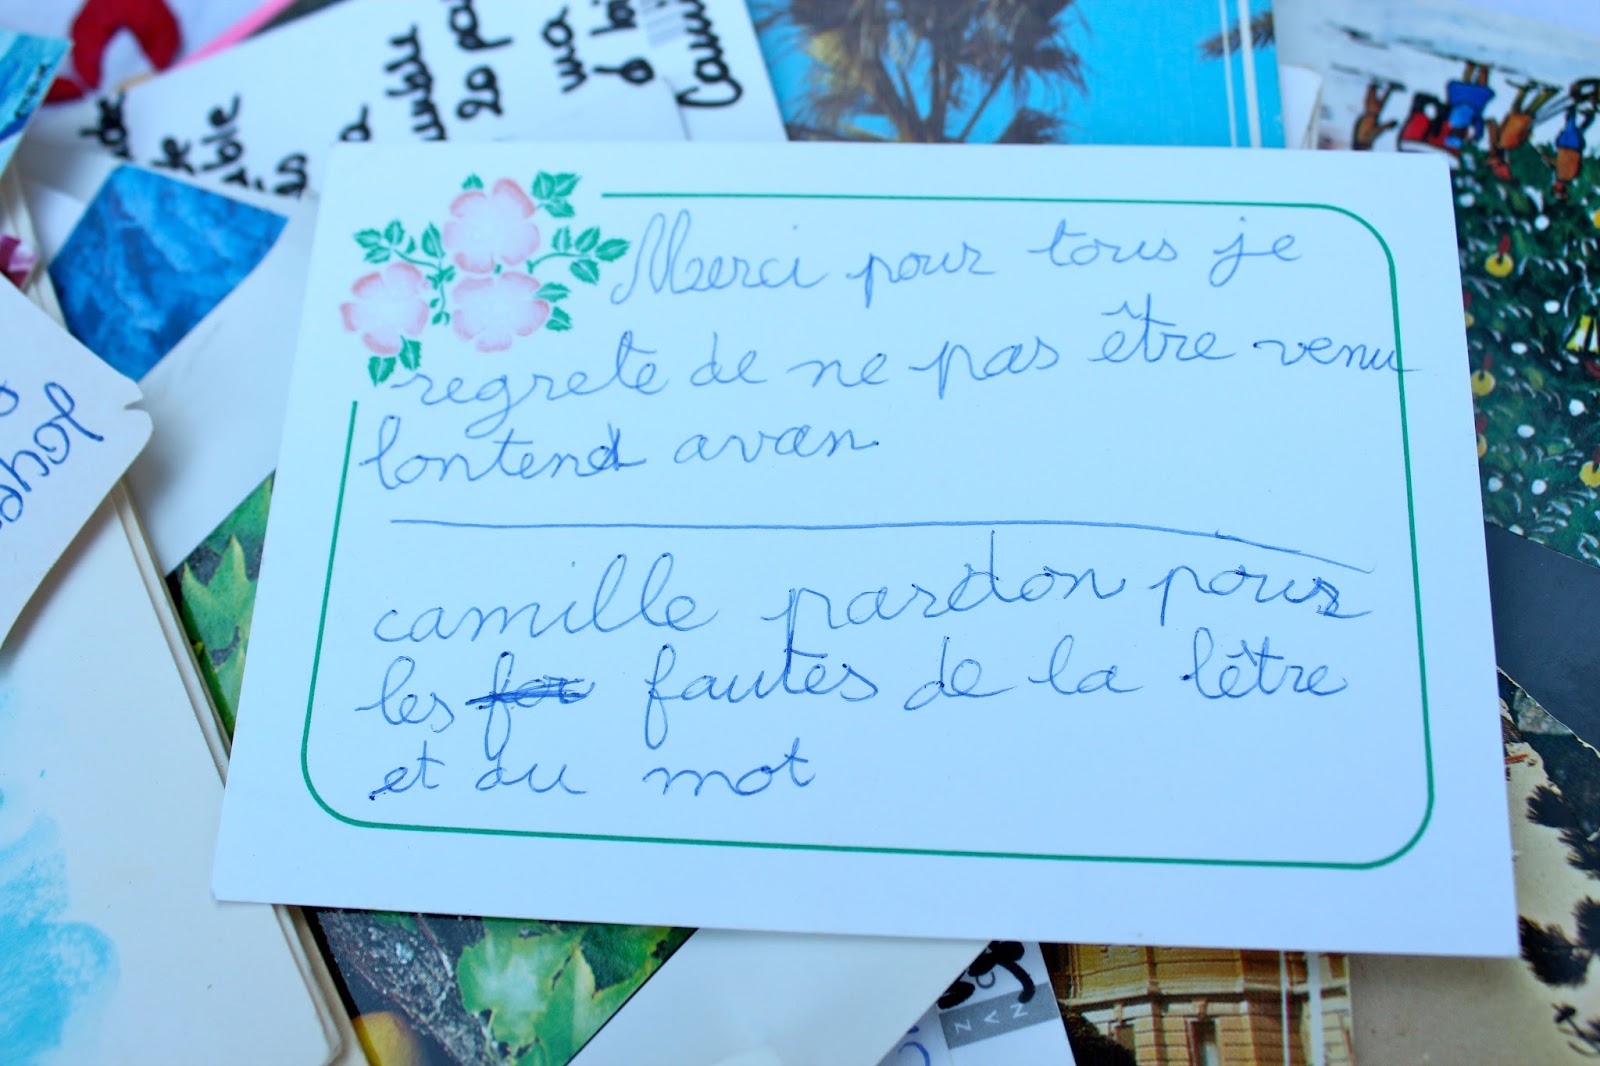 Merci pour tous je
regrete de ne pas être venu
lontend avan
camille pardon pour
les for fautes de la lêtre
et du mot
20
ma